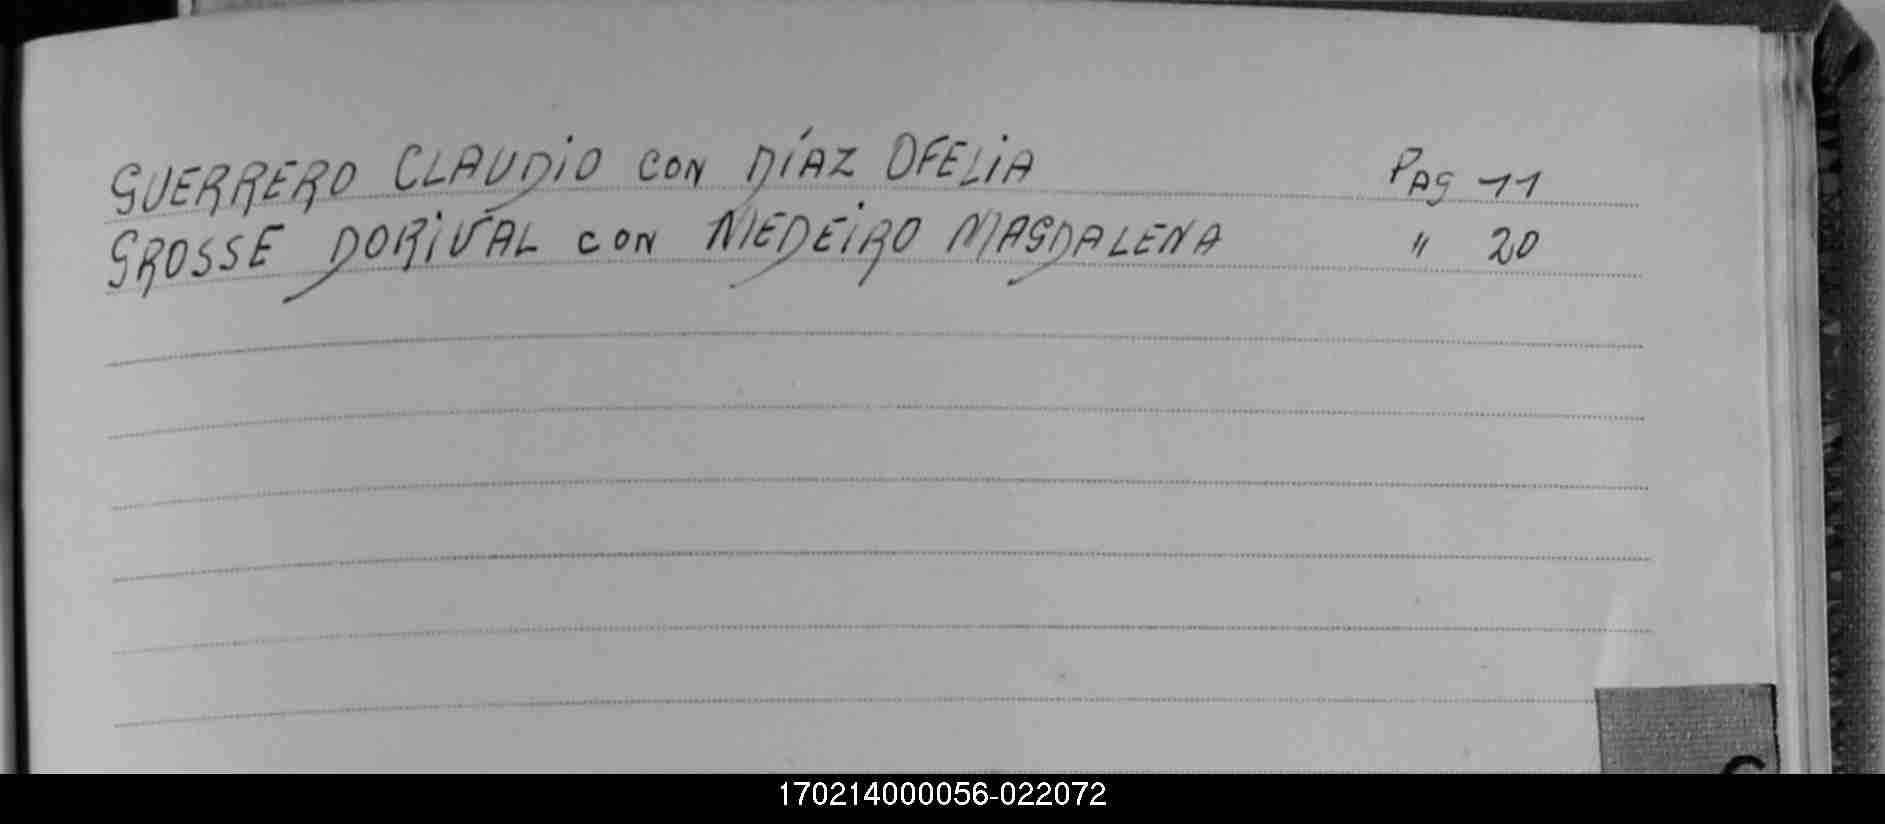 GUERRERO CLAUDIO CON DÍAZ OFELIA PAG 11
GROSSE DORIVAL CON MEDEIRO MAGDALENA " 20
G
170214000056-022072